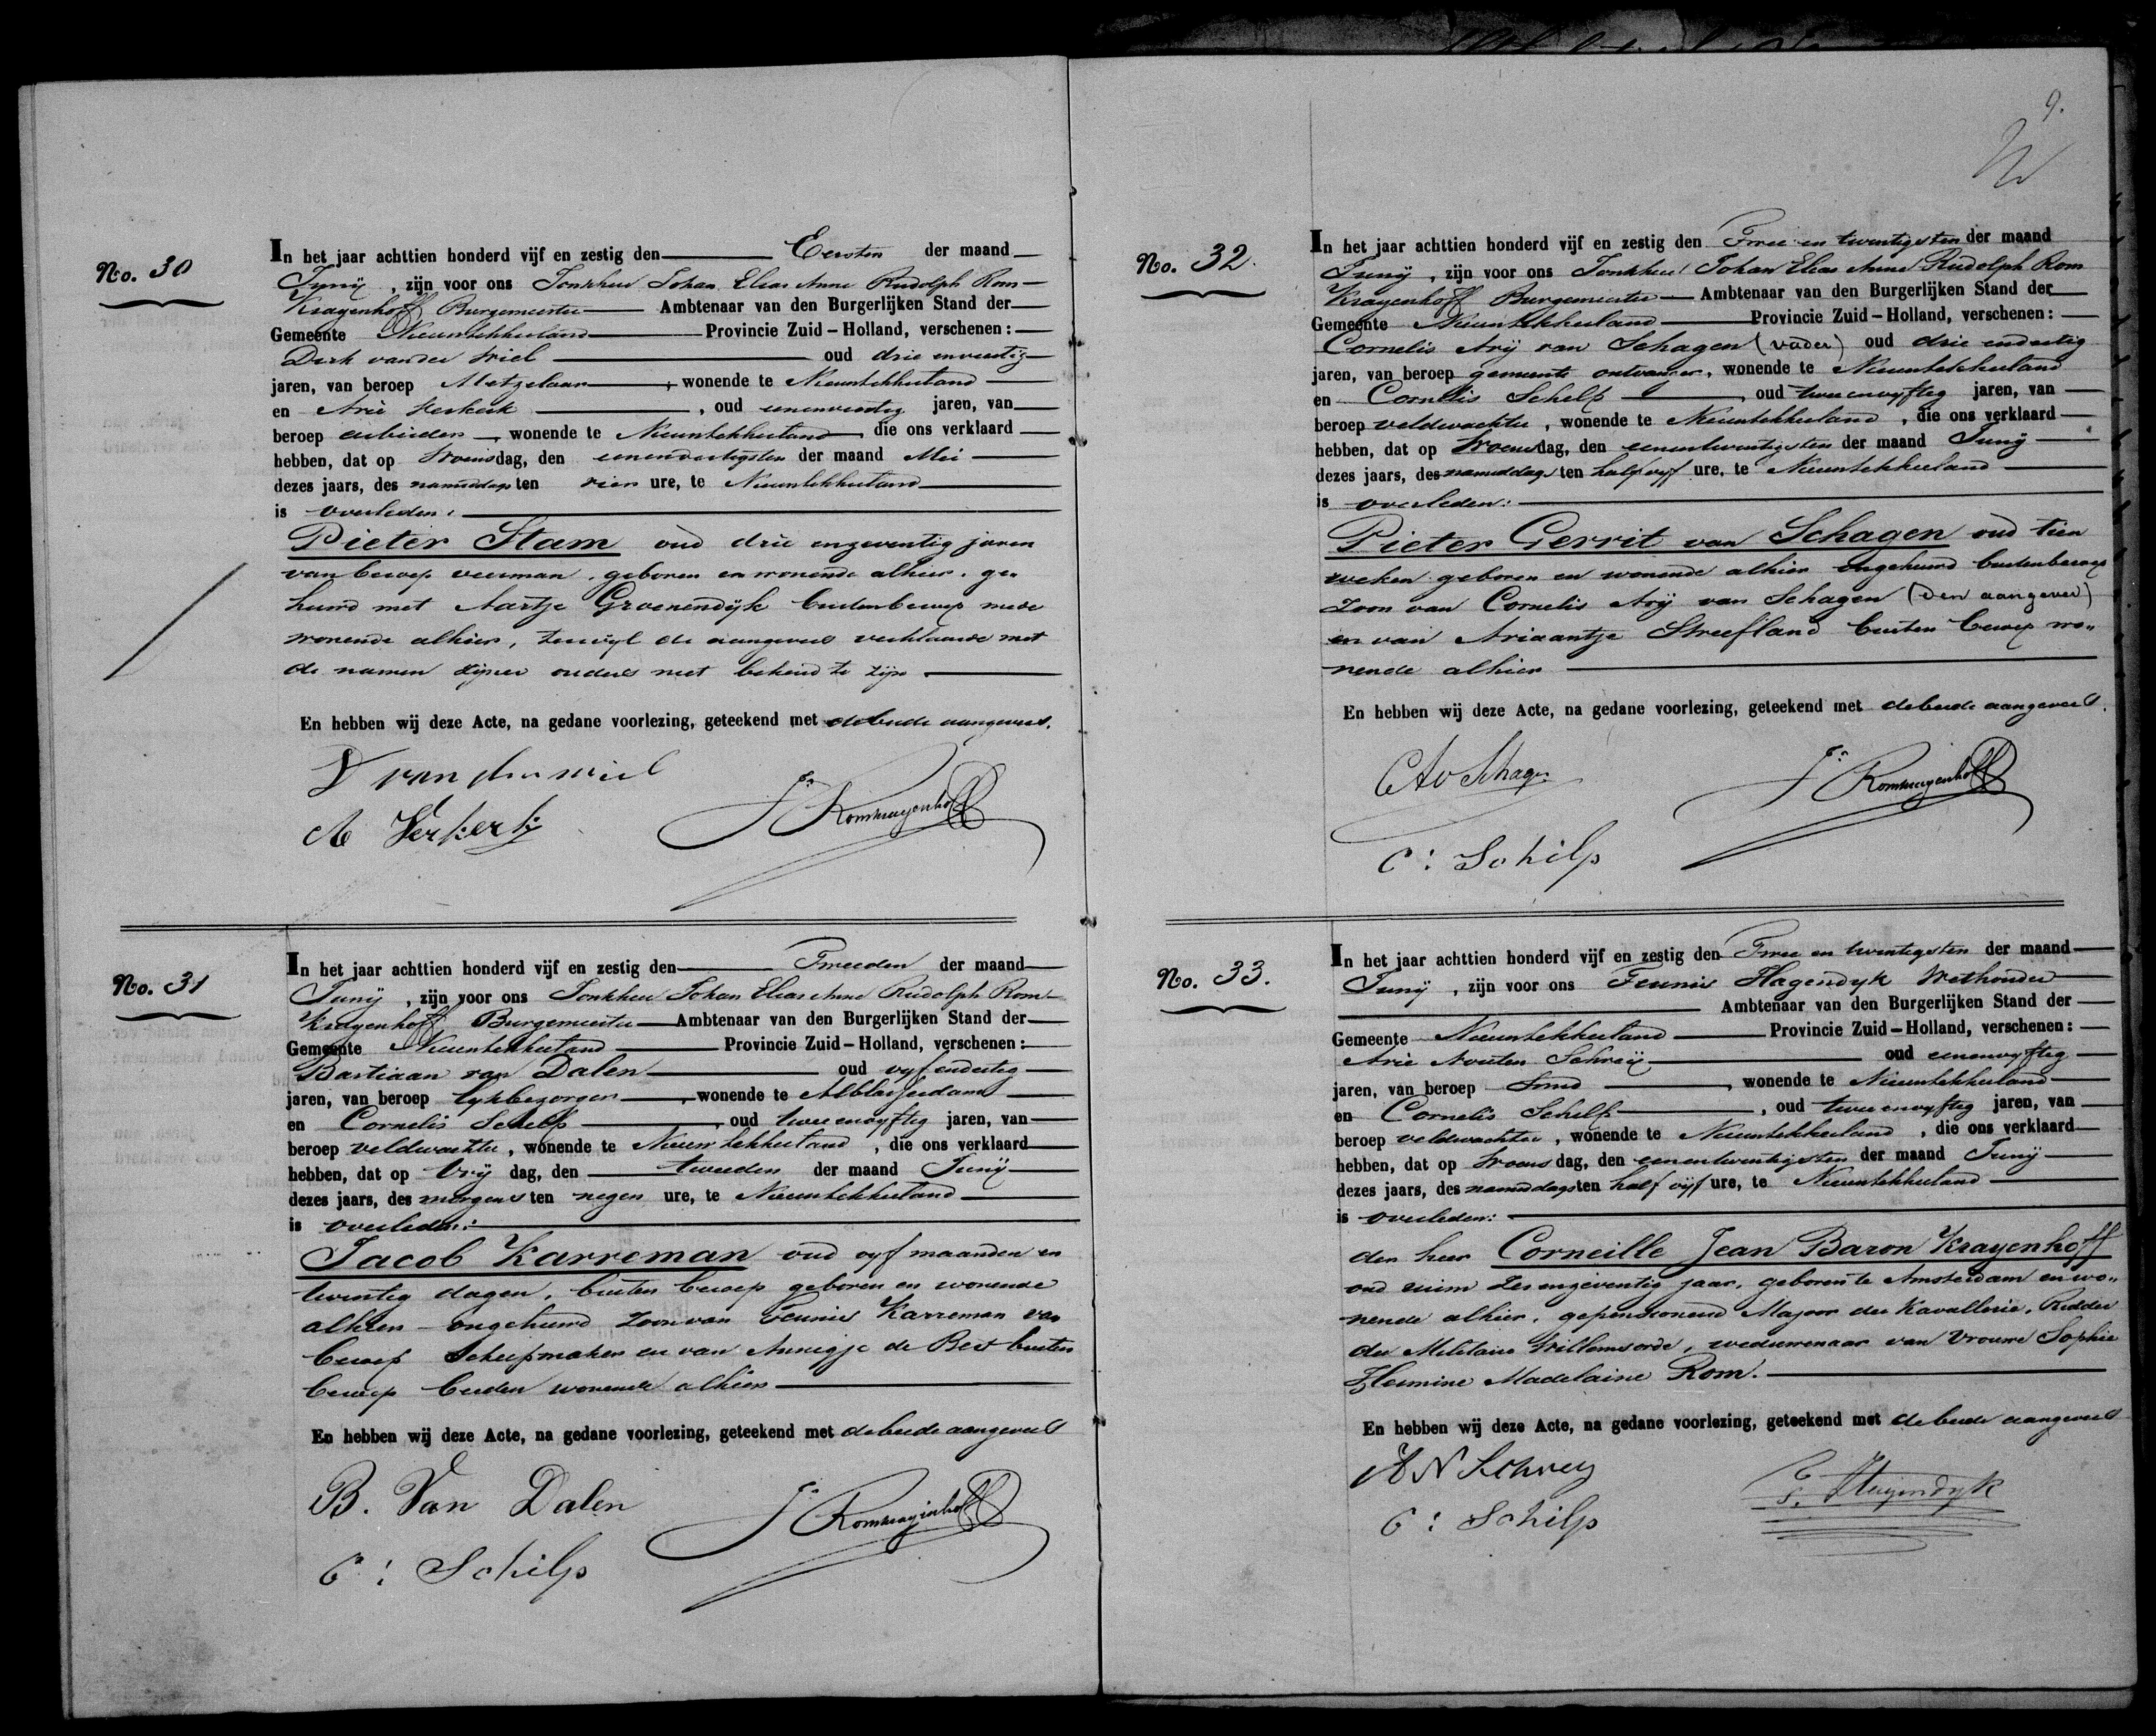 No. 30
In het jaar achttien honderd vijf en zestig den Eersten der maand
Junij, zijn voor ons Jonkheer Johan Elias Anne Rudolph Rom
Krayenhoff Burgemeester Ambtenaar van den Burgerlijken Stand der
Gemeente Nieuwlekkerland Provincie Zuid-Holland, verschenen:
Dirk van der Wiel oud drie en veertig
jaren, van beroep Metzelaar, wonende te Nieuwlekkerland
en Arie Verkerk, oud eenenveertig jaren, van
beroep arbeider, wonende te Nieuwlekkerland, die ons verklaard
hebben, dat op Woensdag, den eenendertigsten der maand Mei
dezes jaars, des namiddags ten vier ure, te Nieuwlekkerland
is overleden:
Pieter Stam oud drie enzeventig jaren
van beroep veerman, geboren en wonende alhier, ge„
huwd met Aartje Groenendijk buiten beroep mede
wonende alhier, terwijl de aangevers verklaarde met
de namen zijner ouders niet bekend te zijn
En hebben wij deze Acte, na gedane voorlezing, geteekend met de beide aangevers.
D van der wiel
A Verkerk
Jr Romkrayenhoff
No. 31
In het jaar achttien honderd vijf en zestig den Tweeden der maand
Junij, zijn voor ons Jonkheer Johan Elias Anne Rudolph Rom
Krayenhoff Burgemeester Ambtenaar van den Burgerlijken Stand der
Gemeente Nieuwlekkerland Provincie Zuid-Holland, verschenen:
Bastiaan van Dalen oud vyf endertig
jaren, van beroep lykbezorger, wonende te Alblasserdam
en Cornelis Schelp, oud twee envyftig jaren, van
beroep veldwachter, wonende te Nieuwlekkerland, die ons verklaard
hebben, dat op Vrij dag, den tweeden der maand Junij
dezes jaars, des morgens ten negen ure, te Nieuwlekkerland
is overleden:
Jacob Karreman oud vyf maanden en
twintig dagen, buiten beroep geboren en wonende
alhier ongehuwd zoon van Teunis Karreman van
beroep Scheepmaker en van Annigje de Best buiten
beroep beiden wonende alhier
En hebben wij deze Acte, na gedane voorlezing, geteekend met de beide aangevers
B. Van Dalen
C: Schilp
Jr Romkrayenhoff
9.
No. 32.
In het jaar achttien honderd vijf en zestig den Twee en twintigsten der maand
Junij, zijn voor ons Jonkheer Johan Elias Anne Rudolph Rom
Krayenhoff Burgemeester Ambtenaar van den Burgerlijken Stand der
Gemeente Nieuwlekkerland Provincie Zuid-Holland, verschenen:
Cornelis Arij van Schagen (vader) oud drie endertig
jaren, van beroep gemeente ontvanger, wonende te Nieuwlekkerland
en Cornelis Schelp, oud twee envyftig jaren, van
beroep veldwachter, wonende te Nieuwlekkerland, die ons verklaard
hebben, dat op Woensdag, den eenentwintigsten der maand Junij
dezes jaars, des namiddags ten half vyf ure, te Nieuwlekkerland
is overleden:
Pieter Gerrit van Schagen oud tien
weken geboren en wonende alhier ongehuwd buiten beroep
zoon van Cornelis Arij van Schagen (den aangever)
en van Ariaantje Streefland buiten beroep wo„
nende alhier
En hebben wij deze Acte, na gedane voorlezing, geteekend met de beide aangevers.
CAv Schagen
C: Schilp
Jr Romkrayenhoff
No. 33.
In het jaar achttien honderd vijf en zestig den Twee en twintigsten der maand
Junij, zijn voor ons Teunis Hagendyk Wethouder
Ambtenaar van den Burgerlijken Stand der
Gemeente Nieuwlekkerland Provincie Zuid-Holland, verschenen:
Arie Nouten Schreij oud eenenvyftig
jaren, van beroep Smid, wonende te Nieuwlekkerland
en Cornelis Schelp, oud twee envyftig jaren, van
beroep veldwachter, wonende te Nieuwlekkerland, die ons verklaard
hebben, dat op Woensdag, den eenentwintigsten der maand Junij
dezes jaars, des namiddags ten half vijf ure, te Nieuwlekkerland
is overleden:
den heer Corneille Jean Baron Krayenhoff
oud ruim zes enzeventig jaar, geboren te Amsterdam en wo„
nende alhier, gepensioneerd Majoor der Kavallerie, Ridder
der Militaire Willemsorde, weduwenaar van Vrouwe Sophie
Hermine Madelaine Rom.
En hebben wij deze Acte, na gedane voorlezing, geteekend met de beide aangevers
A N Schrey
C: Schilp
T. Hagendyk